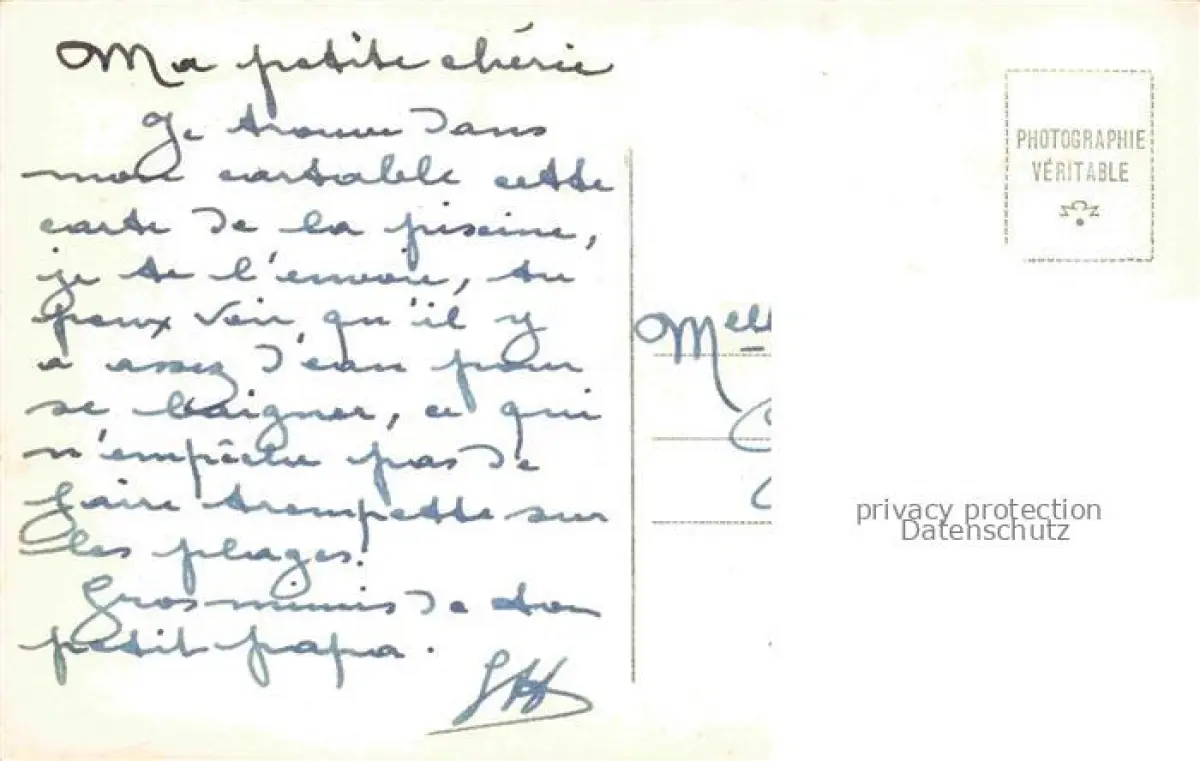 Ma petite chérie
Je trouve dans
mon cartable cette
carte de la piscine,
je te l'envoie, tu
peux voir qu'il y
a assez d'eau pour
se baigner, ce qui
n'empêche pas de
faire trempette sur
les plages.
Gros mimis de ton
petit papa.
PHOTOGRAPHIE
VÉRITABLE
Melle
privacy protection
Datenschutz